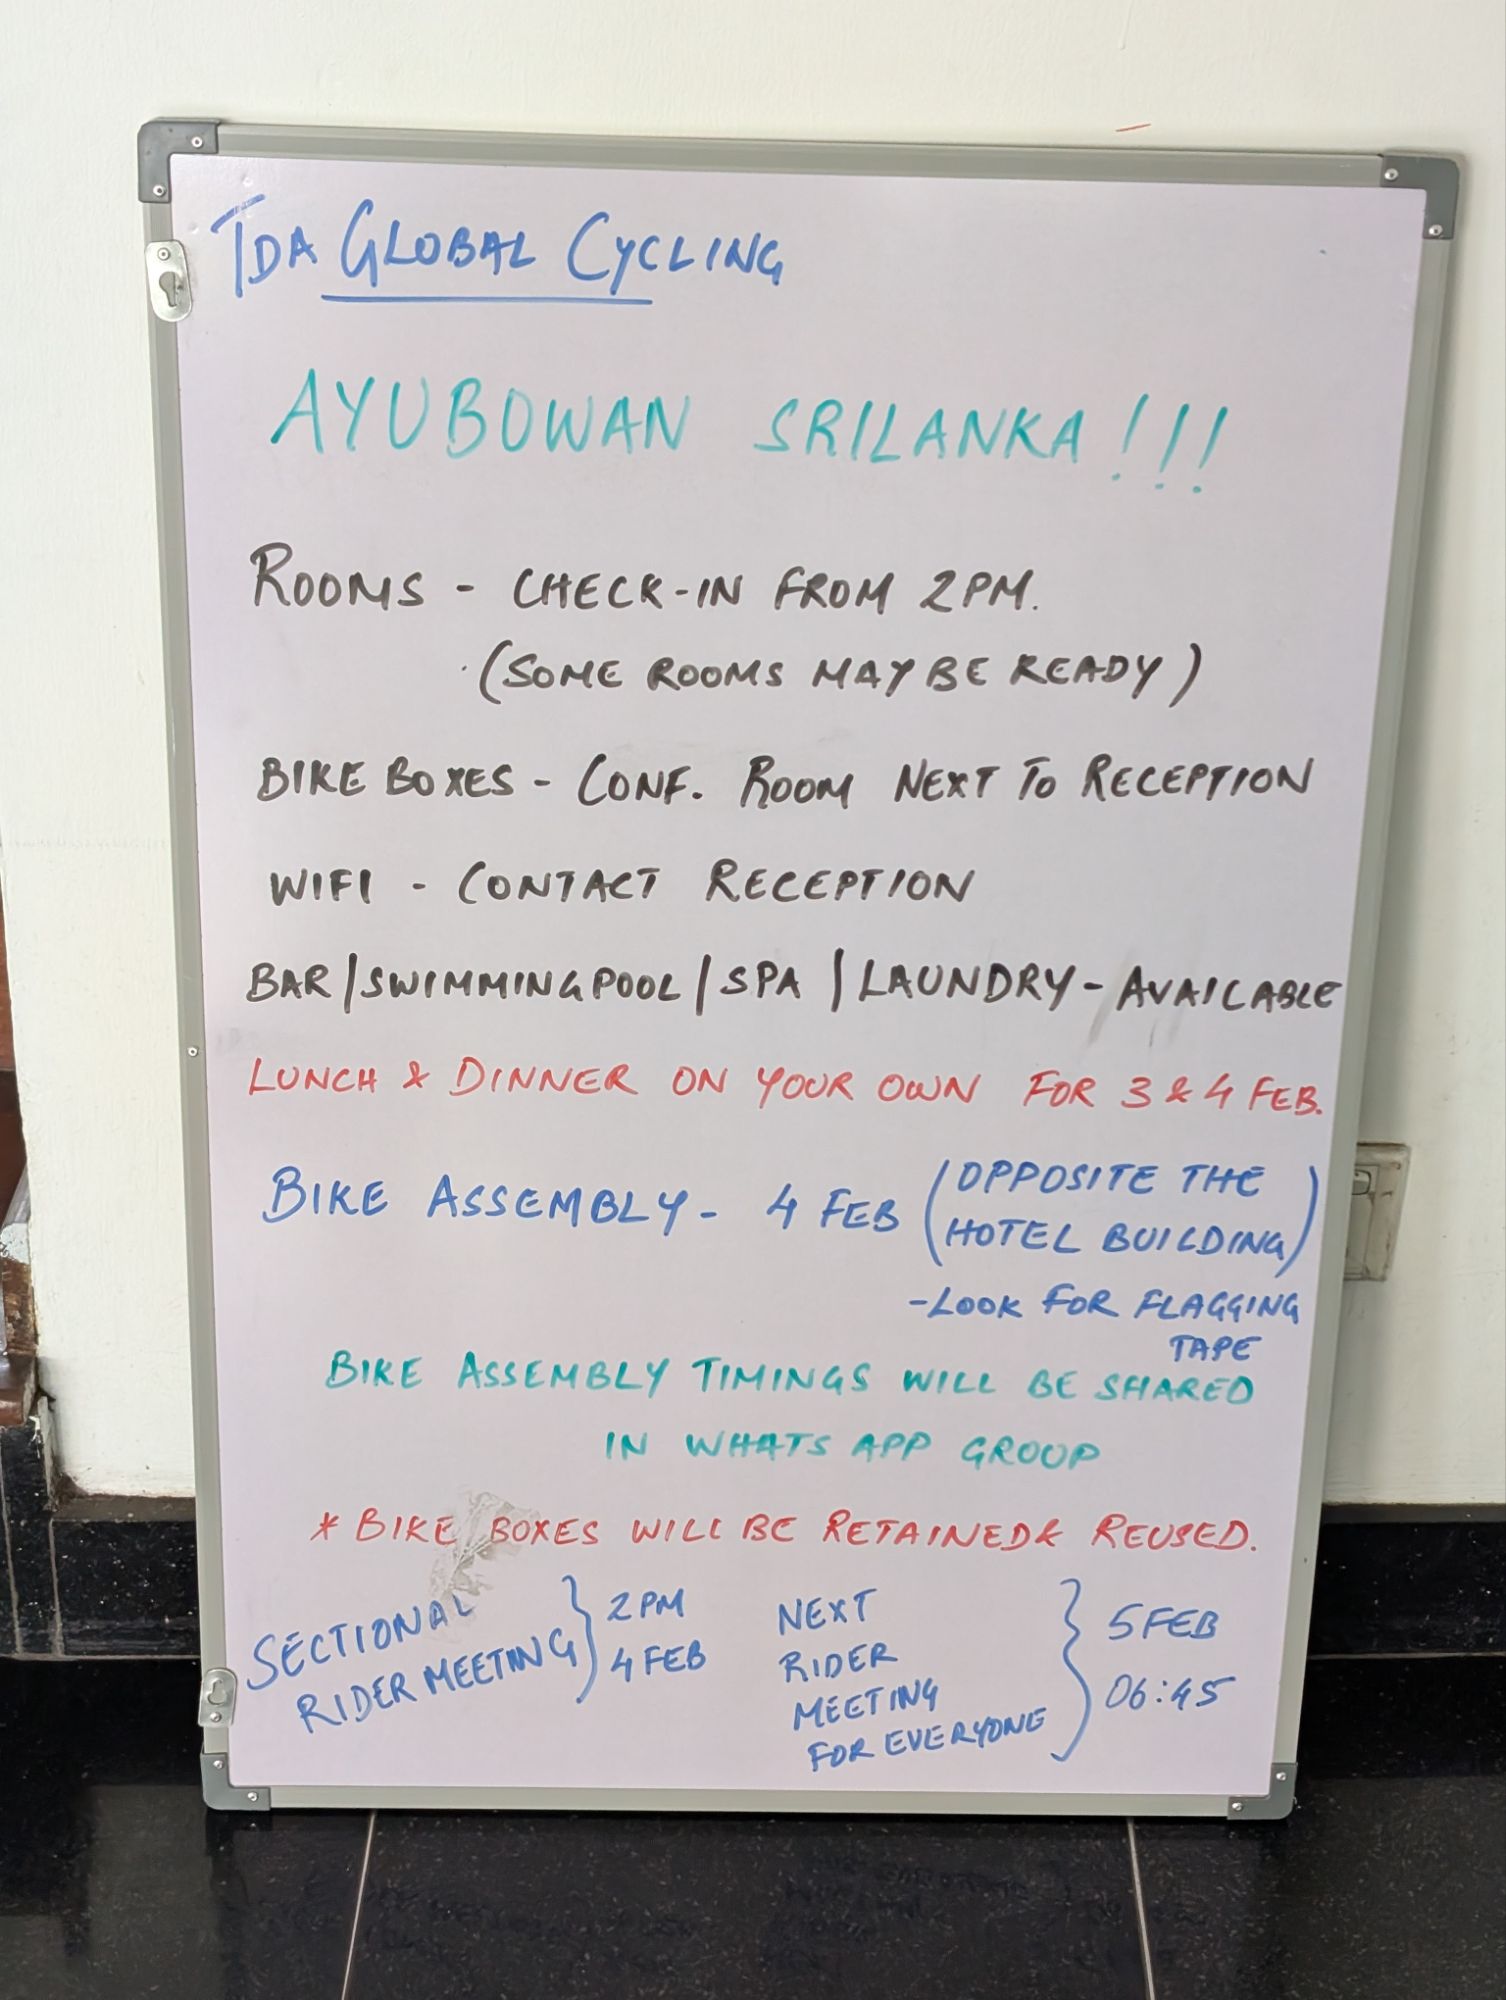 TDA GLOBAL CYCLING
AYUBOWAN SRILANKA!!!
ROOMS - CHECK-IN FROM 2PM.
(SOME ROOMS MAY BE READY)
BIKE BOXES - CONF. ROOM NEXT TO RECEPTION
WIFI - CONTACT RECEPTION
BAR/SWIMMINGPOOL/SPA/LAUNDRY - AVAILABLE
LUNCH & DINNER ON YOUR OWN FOR 3 & 4 FEB.
BIKE ASSEMBLY - 4 FEB (OPPOSITE THE
HOTEL BUILDING)
- LOOK FOR FLAGGING
TAPE
BIKE ASSEMBLY TIMINGS WILL BE SHARED
IN WHATS APP GROUP
* BIKE BOXES WILL BE RETAINED & REUSED.
SECTIONAL
RIDER MEETING } 2PM
4 FEB
NEXT
RIDER
MEETING
FOR EVERYONE } 5 FEB
06:45